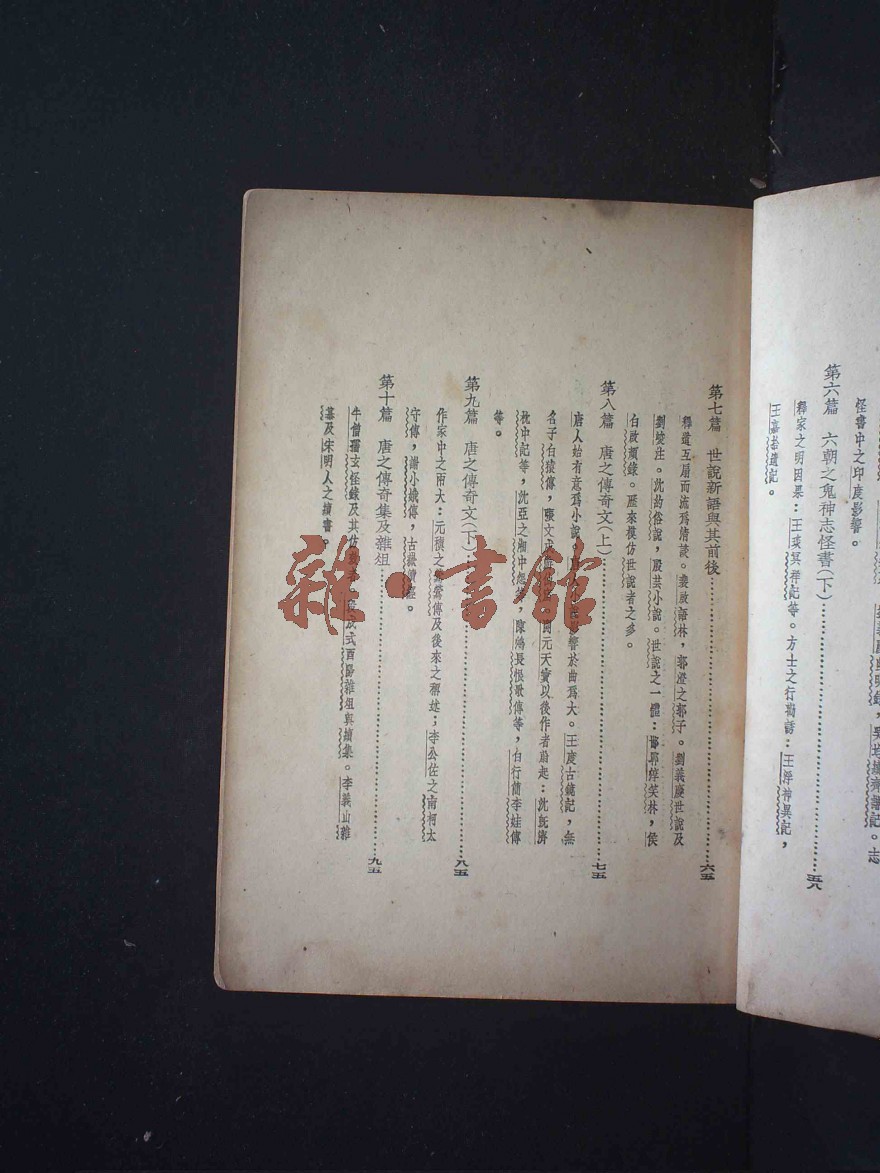 怪書中之印度影響。
第六篇 六朝之鬼神志怪書(下)……五八
釋家之明因果：王琰冥祥記等。方士之行勸誘：王浮神異記，
王嘉拾遺記。
第七篇 世說新語與其前後……六五
釋道互扇而流爲清談。裴啟語林，郭澄之郭子。劉義慶世說及
劉峻注。沈約俗說，殷芸小說。世說之一體：邯鄲淳笑林，侯
白啟顏錄。歷來模仿世說者之多。
第八篇 唐之傳奇文(上)……七五
唐人始有意爲小說，影響於曲爲大。王度古鏡記，無
名子白猿傳，張文成 開元天寶以後作者蔚起：沈既濟
枕中記等，沈亞之湘中怨等，陳鴻長恨歌傳等，白行簡李娃傳
等。
第九篇 唐之傳奇文(下)……八五
作家中之兩大：元稹之鶯鶯傳及後來之稱述；李公佐之南柯太
守傳，謝小娥傳，古嶽瀆經。
第十篇 唐之傳奇集及雜俎……九五
牛僧孺玄怪錄及其仿 段成式酉陽雜俎與續集。李義山雜
纂及宋明人之續書。
雜·書館